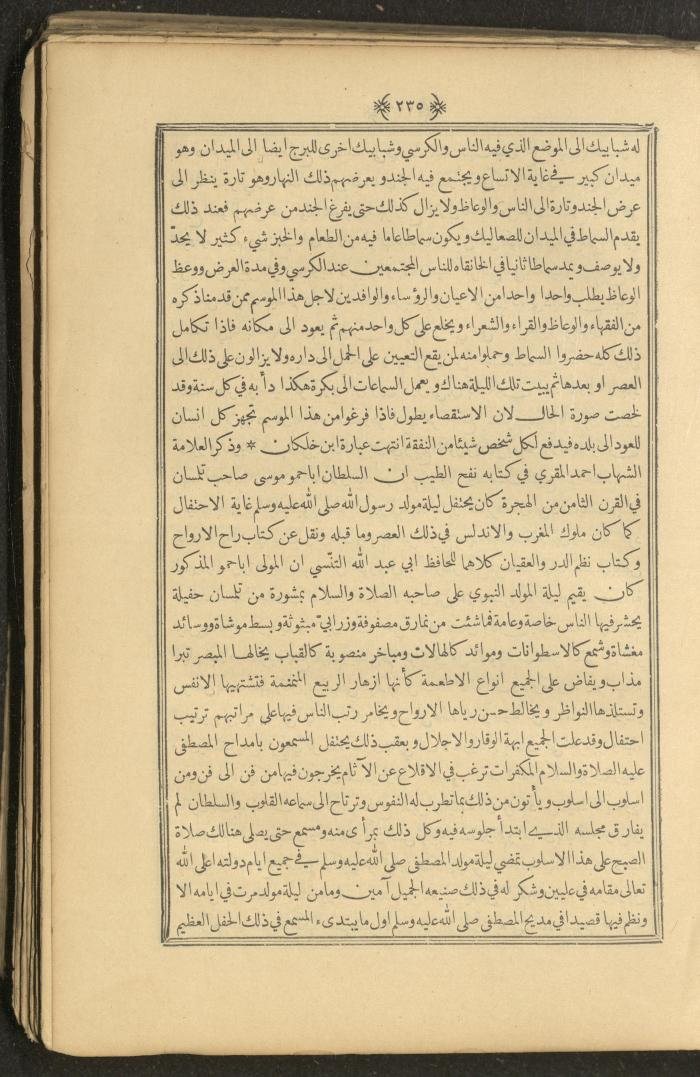 ٢٣٥
له شبابيك الى الموضع الذي فيه الناس والكرسي وشبابيك اخرى للبرج ايضا الى الميدان وهو
ميدان كبير في غاية الاتساع ويجتمع فيه الجند ويعرضهم ذلك النهار وهو تارة ينظر الى
عرض الجند وتارة الى الناس والوعاظ ولا يزال كذلك حتى يفرغ الجند من عرضهم فعند ذلك
يقدم السماط في الميدان للصعاليك ويكون سماطا عاما فيه من الطعام والخبز شيء كثير لا يحدّ
ولا يوصف ويمد سماطا ثانيا في الخانقاه للناس المجتمعين عند الكرسي وفي مدة العرض ووعظ
الوعاظ يطلب واحدا واحدا من الاعيان والرؤساء والوافدين لاجل هذا الموسم ممن قدمنا ذكره
من الفقهاء والوعاظ والقراء والشعراء ويخلع على كل واحد منهم ثم يعود الى مكانه فاذا تكامل
ذلك كله حضروا السماط وحملوا منه لمن يقع التعيين على الحمل الى داره ولا يزالون على ذلك الى
العصر او بعدها ثم يبيت تلك الليلة هناك ويعمل السماعات الى بكرة هكذا دأبه في كل سنة وقد
لخصت صورة الحال لان الاستقصاء يطول فاذا فرغوا من هذا الموسم تجهز كل انسان
للعود الى بلده فيدفع لكل شخص شيئا من النفقة انتهت عبارة ابن خلكان * وذكر العلامة
الشهاب احمد المقري في كتابه نفح الطيب ان السلطان اباحمو موسى صاحب تلمسان
في القرن الثامن من الهجرة كان يحتفل ليلة مولد رسول الله صلى الله عليه وسلم غاية الاحتفال
كما كان ملوك المغرب والاندلس في ذلك العصر وما قبله ونقل عن كتاب راح الارواح
وكتاب نظم الدر والعقيان كلاهما للحافظ ابي عبد الله التنّسي ان المولى اباحمو المذكور
كان يقيم ليلة المولد النبوي على صاحبه الصلاة والسلام بمشورة من تلمسان حفيلة
يحشر فيها الناس خاصة وعامة فما شئت من نمارق مصفوفة وزرابيّ مبثوثة وبسط موشاة ووسائد
مغشاة وشمع كالاسطوانات وموائد كالهالات ومباخر منصوبة كالقباب يخالها المبصر تبرا
مذاب ويفاض على الجميع انواع الاطعمة كأنها ازهار الربيع المنمنمة فتشتهيها الانفس
وتستلذها النواظر ويخالط حسن رياها الارواح ويخامر رتب الناس فيها على مراتبهم ترتيب
احتفال وقد علت الجميع ابهة الوقار والاجلال وبعقب ذلك يحتفل المسمعون بامداح المصطفى
عليه الصلاة والسلام المكفرات ترغب في الاقلاع عن الآثام يخرجون فيها من فن الى فن ومن
اسلوب الى اسلوب ويأتون من ذلك بما تطرب له النفوس وترتاح الى سماعه القلوب والسلطان لم
يفارق مجلسه الذي ابتدأ جلوسه فيه وكل ذلك بمرأى منه ومسمع حتى يصلي هنالك صلاة
الصبح على هذا الاسلوب تمضي ليلة مولد المصطفى صلى الله عليه وسلم في جميع ايام دولته اعلى الله
تعالى مقامه في عليين وشكر له في ذلك صنيعه الجميل آمين وما من ليلة مولد مرت في ايامه الا
ونظم فيها قصيدا في مديح المصطفى صلى الله عليه وسلم اول ما يبتدىء المسمع في ذلك الحفل العظيم